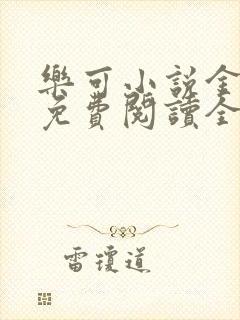 樂可小説全
免費閱讀全
雷瓊道